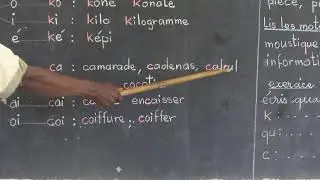 o ko : kone konate
i ki : kilo kilogramme
é ké : képi
ca : camarade, cadenas, calcul
ai cai : encaisser
oi coi : coiffure, coiffer
pièce, p
Lis les mot
moustique
informati
exercice
écris qua
k :
qu :
c :